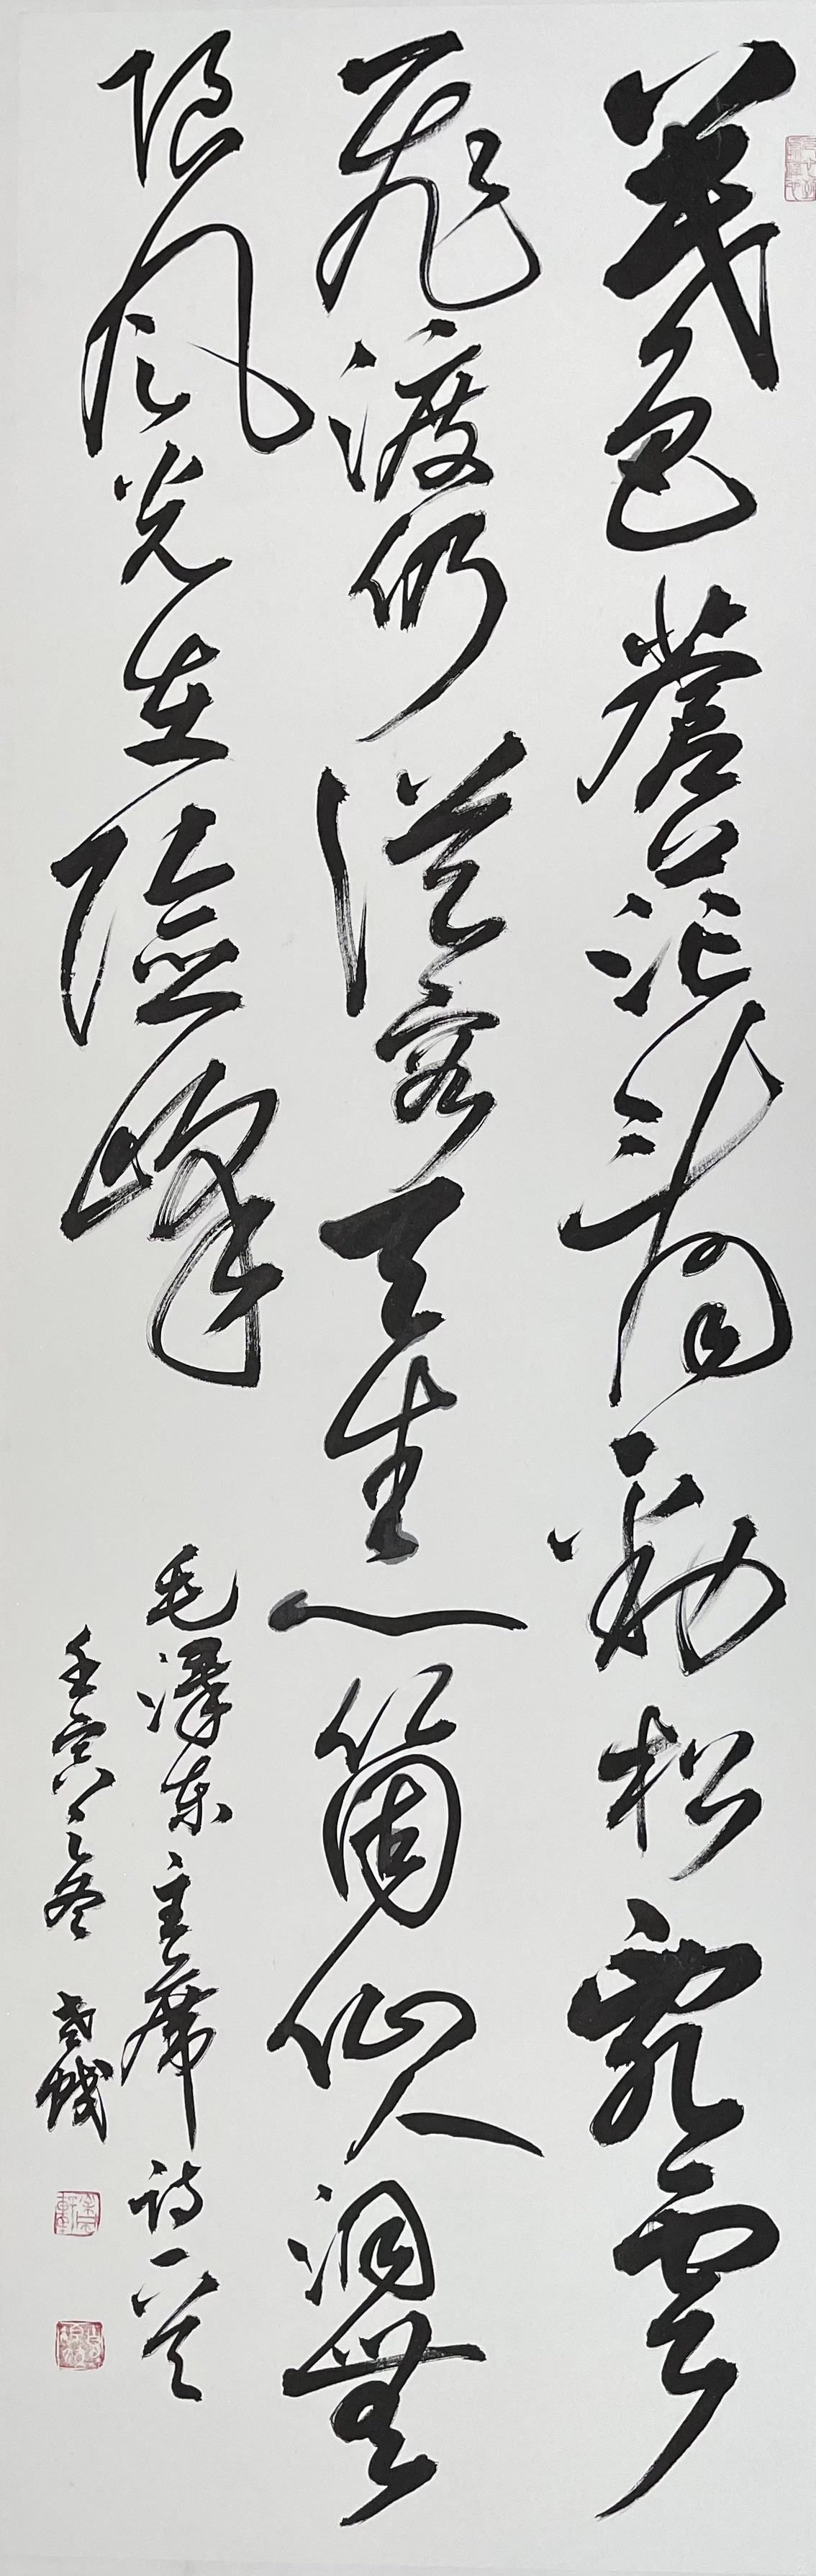 暮色蒼茫看勁松亂雲
飛渡仍從容天生一箇仙人洞無
限風光在險峰
毛澤東主席詩一首
壬寅之冬